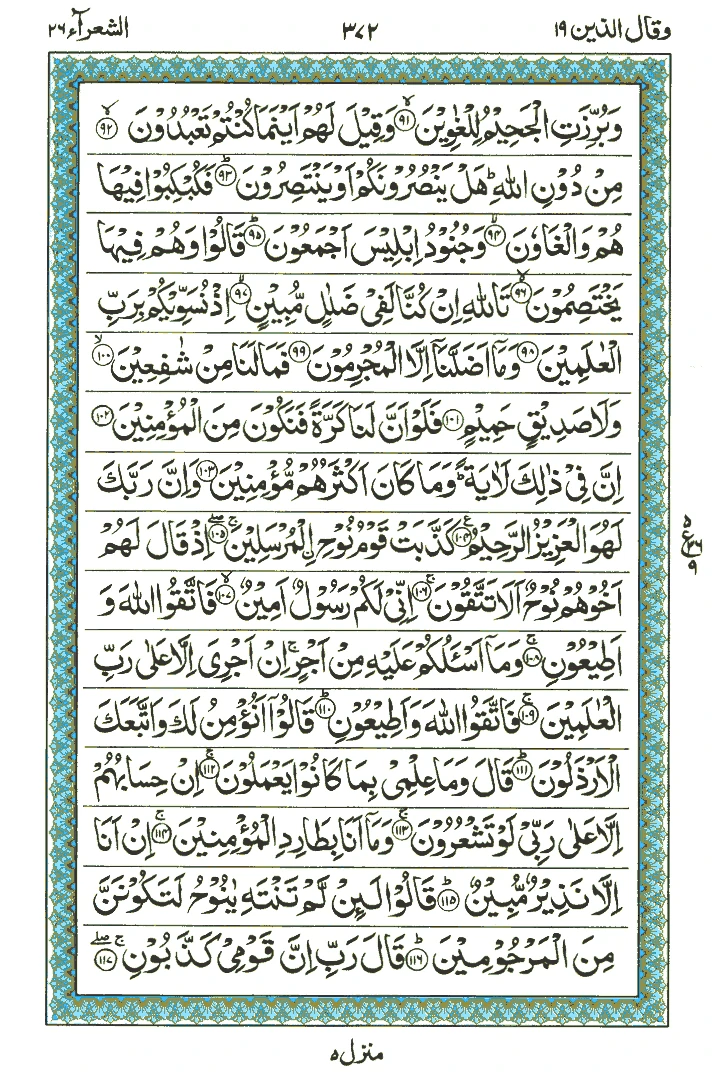 وقال الذين ١٩
٣٧٢
الشعرآء ٢٦
وَبُرِّزَتِ الْجَحِيْمُ لِلْغٰوِيْنَ ۙ﴿٩١﴾ وَقِيْلَ لَهُمْ اَيْنَمَا كُنْتُمْ تَعْبُدُوْنَ ۙ﴿٩٢﴾
مِنْ دُوْنِ اللّٰهِ ؕ هَلْ يَنْصُرُوْنَكُمْ اَوْ يَنْتَصِرُوْنَ ؕ﴿٩٣﴾ فَكُبْكِبُوْا فِيْهَا
هُمْ وَالْغَاوٗنَ ۙ﴿٩٤﴾ وَجُنُوْدُ اِبْلِيْسَ اَجْمَعُوْنَ ؕ﴿٩٥﴾ قَالُوْا وَهُمْ فِيْهَا
يَخْتَصِمُوْنَ ۙ﴿٩٦﴾ تَاللّٰهِ اِنْ كُنَّا لَفِيْ ضَلٰلٍ مُّبِيْنٍ ۙ﴿٩٧﴾ اِذْ نُسَوِّيْكُمْ بِرَبِّ
الْعٰلَمِيْنَ ﴿٩٨﴾ وَمَاۤ اَضَلَّنَاۤ اِلَّا الْمُجْرِمُوْنَ ﴿٩٩﴾ فَمَا لَنَا مِنْ شٰفِعِيْنَ ۙ﴿١٠٠﴾
وَلَا صَدِيْقٍ حَمِيْمٍ ﴿١٠١﴾ فَلَوْ اَنَّ لَنَا كَرَّةً فَنَكُوْنَ مِنَ الْمُؤْمِنِيْنَ ﴿١٠٢﴾
اِنَّ فِيْ ذٰلِكَ لَاٰيَةً ؕ وَمَا كَانَ اَكْثَرُهُمْ مُّؤْمِنِيْنَ ﴿١٠٣﴾ وَاِنَّ رَبَّكَ
لَهُوَ الْعَزِيْزُ الرَّحِيْمُ ﴿١٠٤﴾ كَذَّبَتْ قَوْمُ نُوْحِ ِ۟الْمُرْسَلِيْنَ ۚۖ﴿١٠٥﴾ اِذْ قَالَ لَهُمْ
اَخُوْهُمْ نُوْحٌ اَلَا تَتَّقُوْنَ ۚ﴿١٠٦﴾ اِنِّيْ لَكُمْ رَسُوْلٌ اَمِيْنٌ ۙ﴿١٠٧﴾ فَاتَّقُوا اللّٰهَ وَ
اَطِيْعُوْنِ ۚ﴿١٠٨﴾ وَمَاۤ اَسْـَٔلُكُمْ عَلَيْهِ مِنْ اَجْرٍ ۚ اِنْ اَجْرِيَ اِلَّا عَلٰى رَبِّ
الْعٰلَمِيْنَ ۚ﴿١٠٩﴾ فَاتَّقُوا اللّٰهَ وَاَطِيْعُوْنِ ؕ﴿١١٠﴾ قَالُوْۤا اَنُؤْمِنُ لَكَ وَاتَّبَعَكَ
الْاَرْذَلُوْنَ ؕ﴿١١١﴾ قَالَ وَمَا عِلْمِيْ بِمَا كَانُوْا يَعْمَلُوْنَ ۚ﴿١١٢﴾ اِنْ حِسَابُهُمْ
اِلَّا عَلٰى رَبِّيْ لَوْ تَشْعُرُوْنَ ۚ﴿١١٣﴾ وَمَاۤ اَنَا بِطَارِدِ الْمُؤْمِنِيْنَ ۚ﴿١١٤﴾ اِنْ اَنَا
اِلَّا نَذِيْرٌ مُّبِيْنٌ ؕ﴿١١٥﴾ قَالُوْا لَىِٕنْ لَّمْ تَنْتَهِ يٰنُوْحُ لَتَكُوْنَنَّ
مِنَ الْمَرْجُوْمِيْنَ ؕ﴿١١٦﴾ قَالَ رَبِّ اِنَّ قَوْمِيْ كَذَّبُوْنِ ۚۖ﴿١١٧﴾
٥
ع ٣٦
٩
منزل ٥